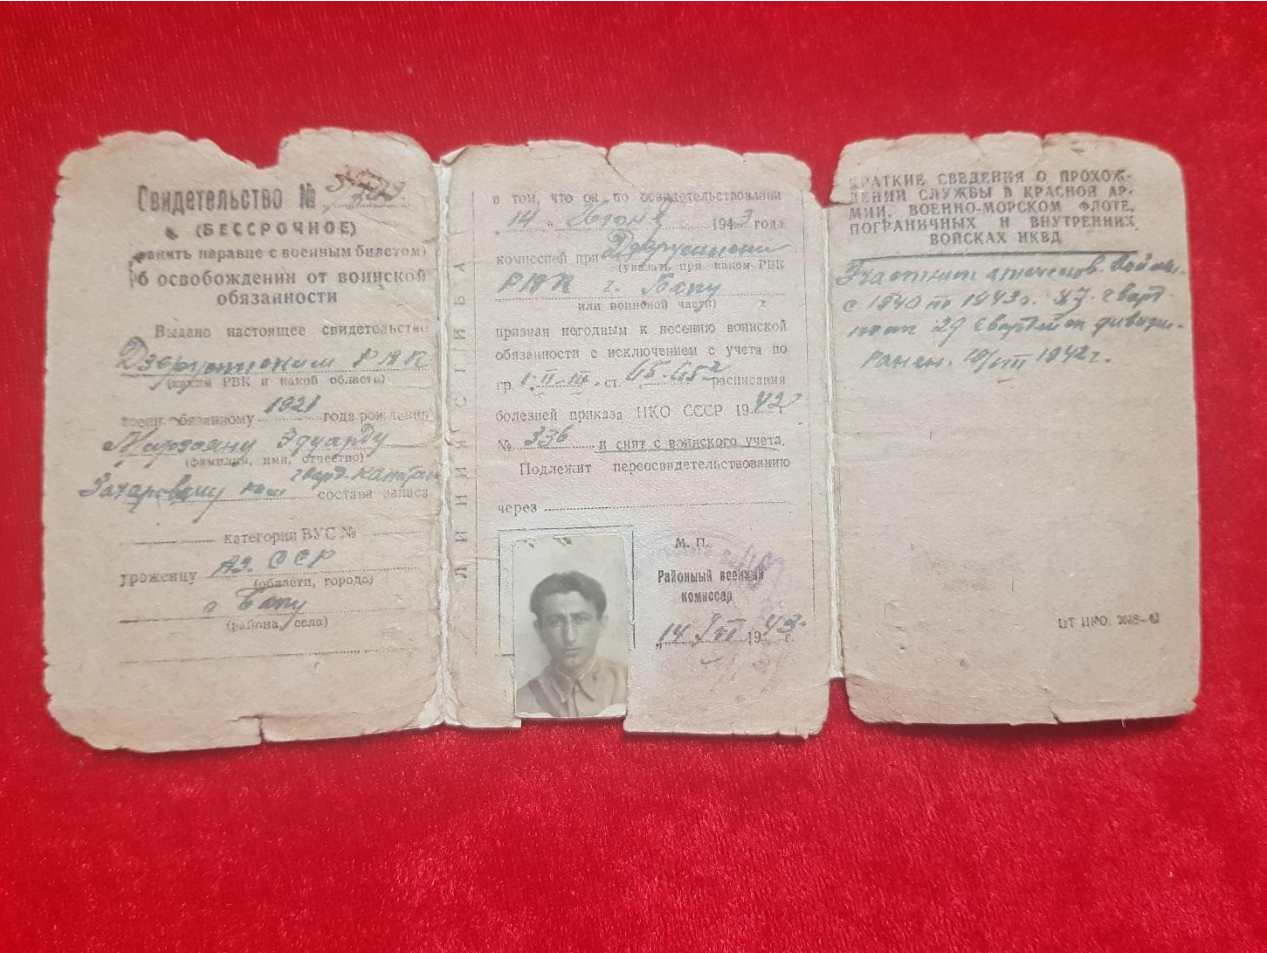 Свидетельство №
(БЕССРОЧНОЕ)
равне с военным билетом)
об освобождении от воинской
обязанности
Выдано настоящее свидетельство
Дзержинским РВК
(каким РВК и какой области)
военнообязанному 1921 года рождения
Мирзояну Эдуарду
(фамилия, имя, отчество)
Захаровичу гвард. капитан
состава запаса
категории ВУС №
уроженцу Аз. ССР
(области, города)
г. Баку
(района, села)
ЛИНИЯ СГИБА
в том, что он, по освидетельствовании
„14 " Июня 1943 года
комиссией при Дзержинском
(указать при каком РВК
РВК г. Баку
или воинской части)
признан негодным к несению воинской
обязанности с исключением с учета по
гр. I-II-III ст. расписания
болезней приказа НКО СССР 1942
№ 336 и снят с воинского учета.
Подлежит переосвидетельствованию
через
М. П.
Районный военный
комиссар
„14 19 43 г.
КРАТКИЕ СВЕДЕНИЯ О ПРОХОЖ-
ДЕНИИ СЛУЖБЫ В КРАСНОЙ АР-
МИИ, ВОЕННО-МОРСКОМ ФЛОТЕ,
ПОГРАНИЧНЫХ И ВНУТРЕННИХ
ВОЙСКАХ НКВД
Участник отечеств. войны
с 1940 по 1943 г. 87 гвард.
полк 29 гвардейск дивизи-
Ранен. 1942 г.